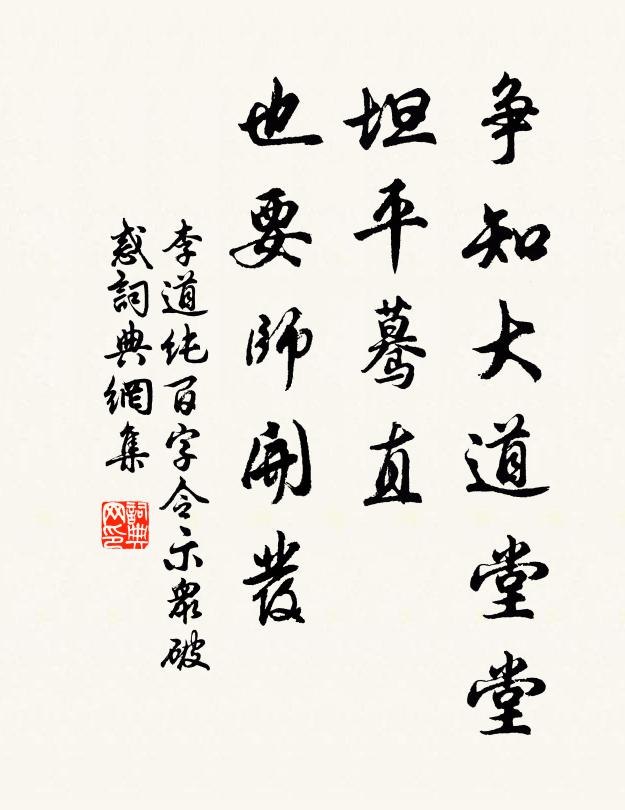 争知大道堂堂
坦平驀直
也要師開發
李道純百字令示眾破
惑詞典網集
詞典网印